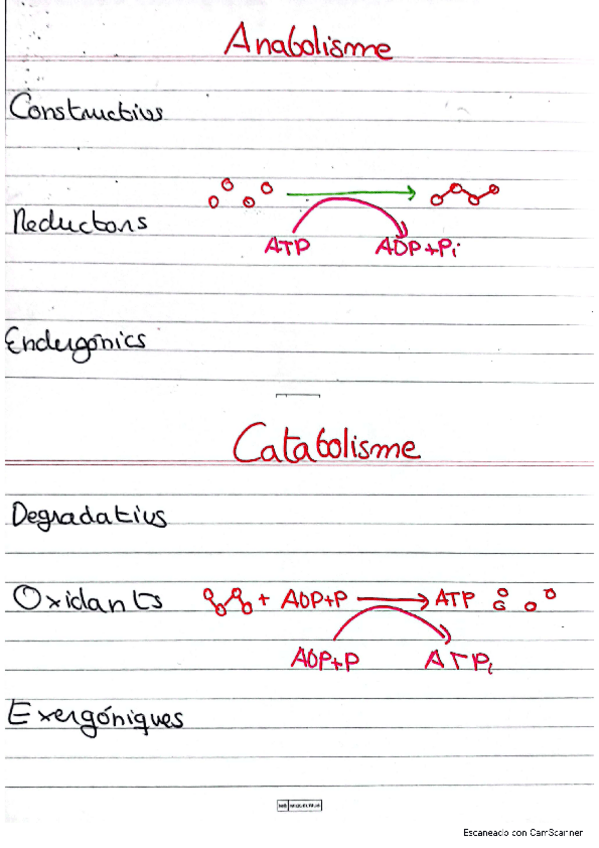 Anabolisme
Constructius
Reductors
ATP ADP+Pi
Endergònics
Catabolisme
Degradatius
Oxidants + ADP+P ATP
ADP+P ATPi
Exergóniques
Escaneado con CamScanner